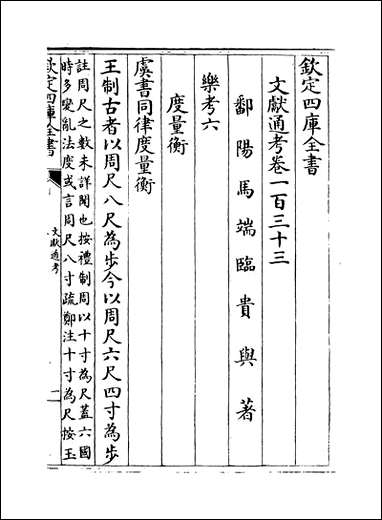 欽定四庫全書
文獻通考卷一百三十三
鄱陽馬端臨貴與著
樂考六
度量衡
虞書同律度量衡
王制古者以周尺八尺為步今以周尺六尺四寸為步
註周尺之數未詳聞也按禮制周以十寸為尺蓋六國
時多變亂法度或言周尺八寸疏鄭注十寸為尺按玉
欽定四庫全書
文獻通考
一